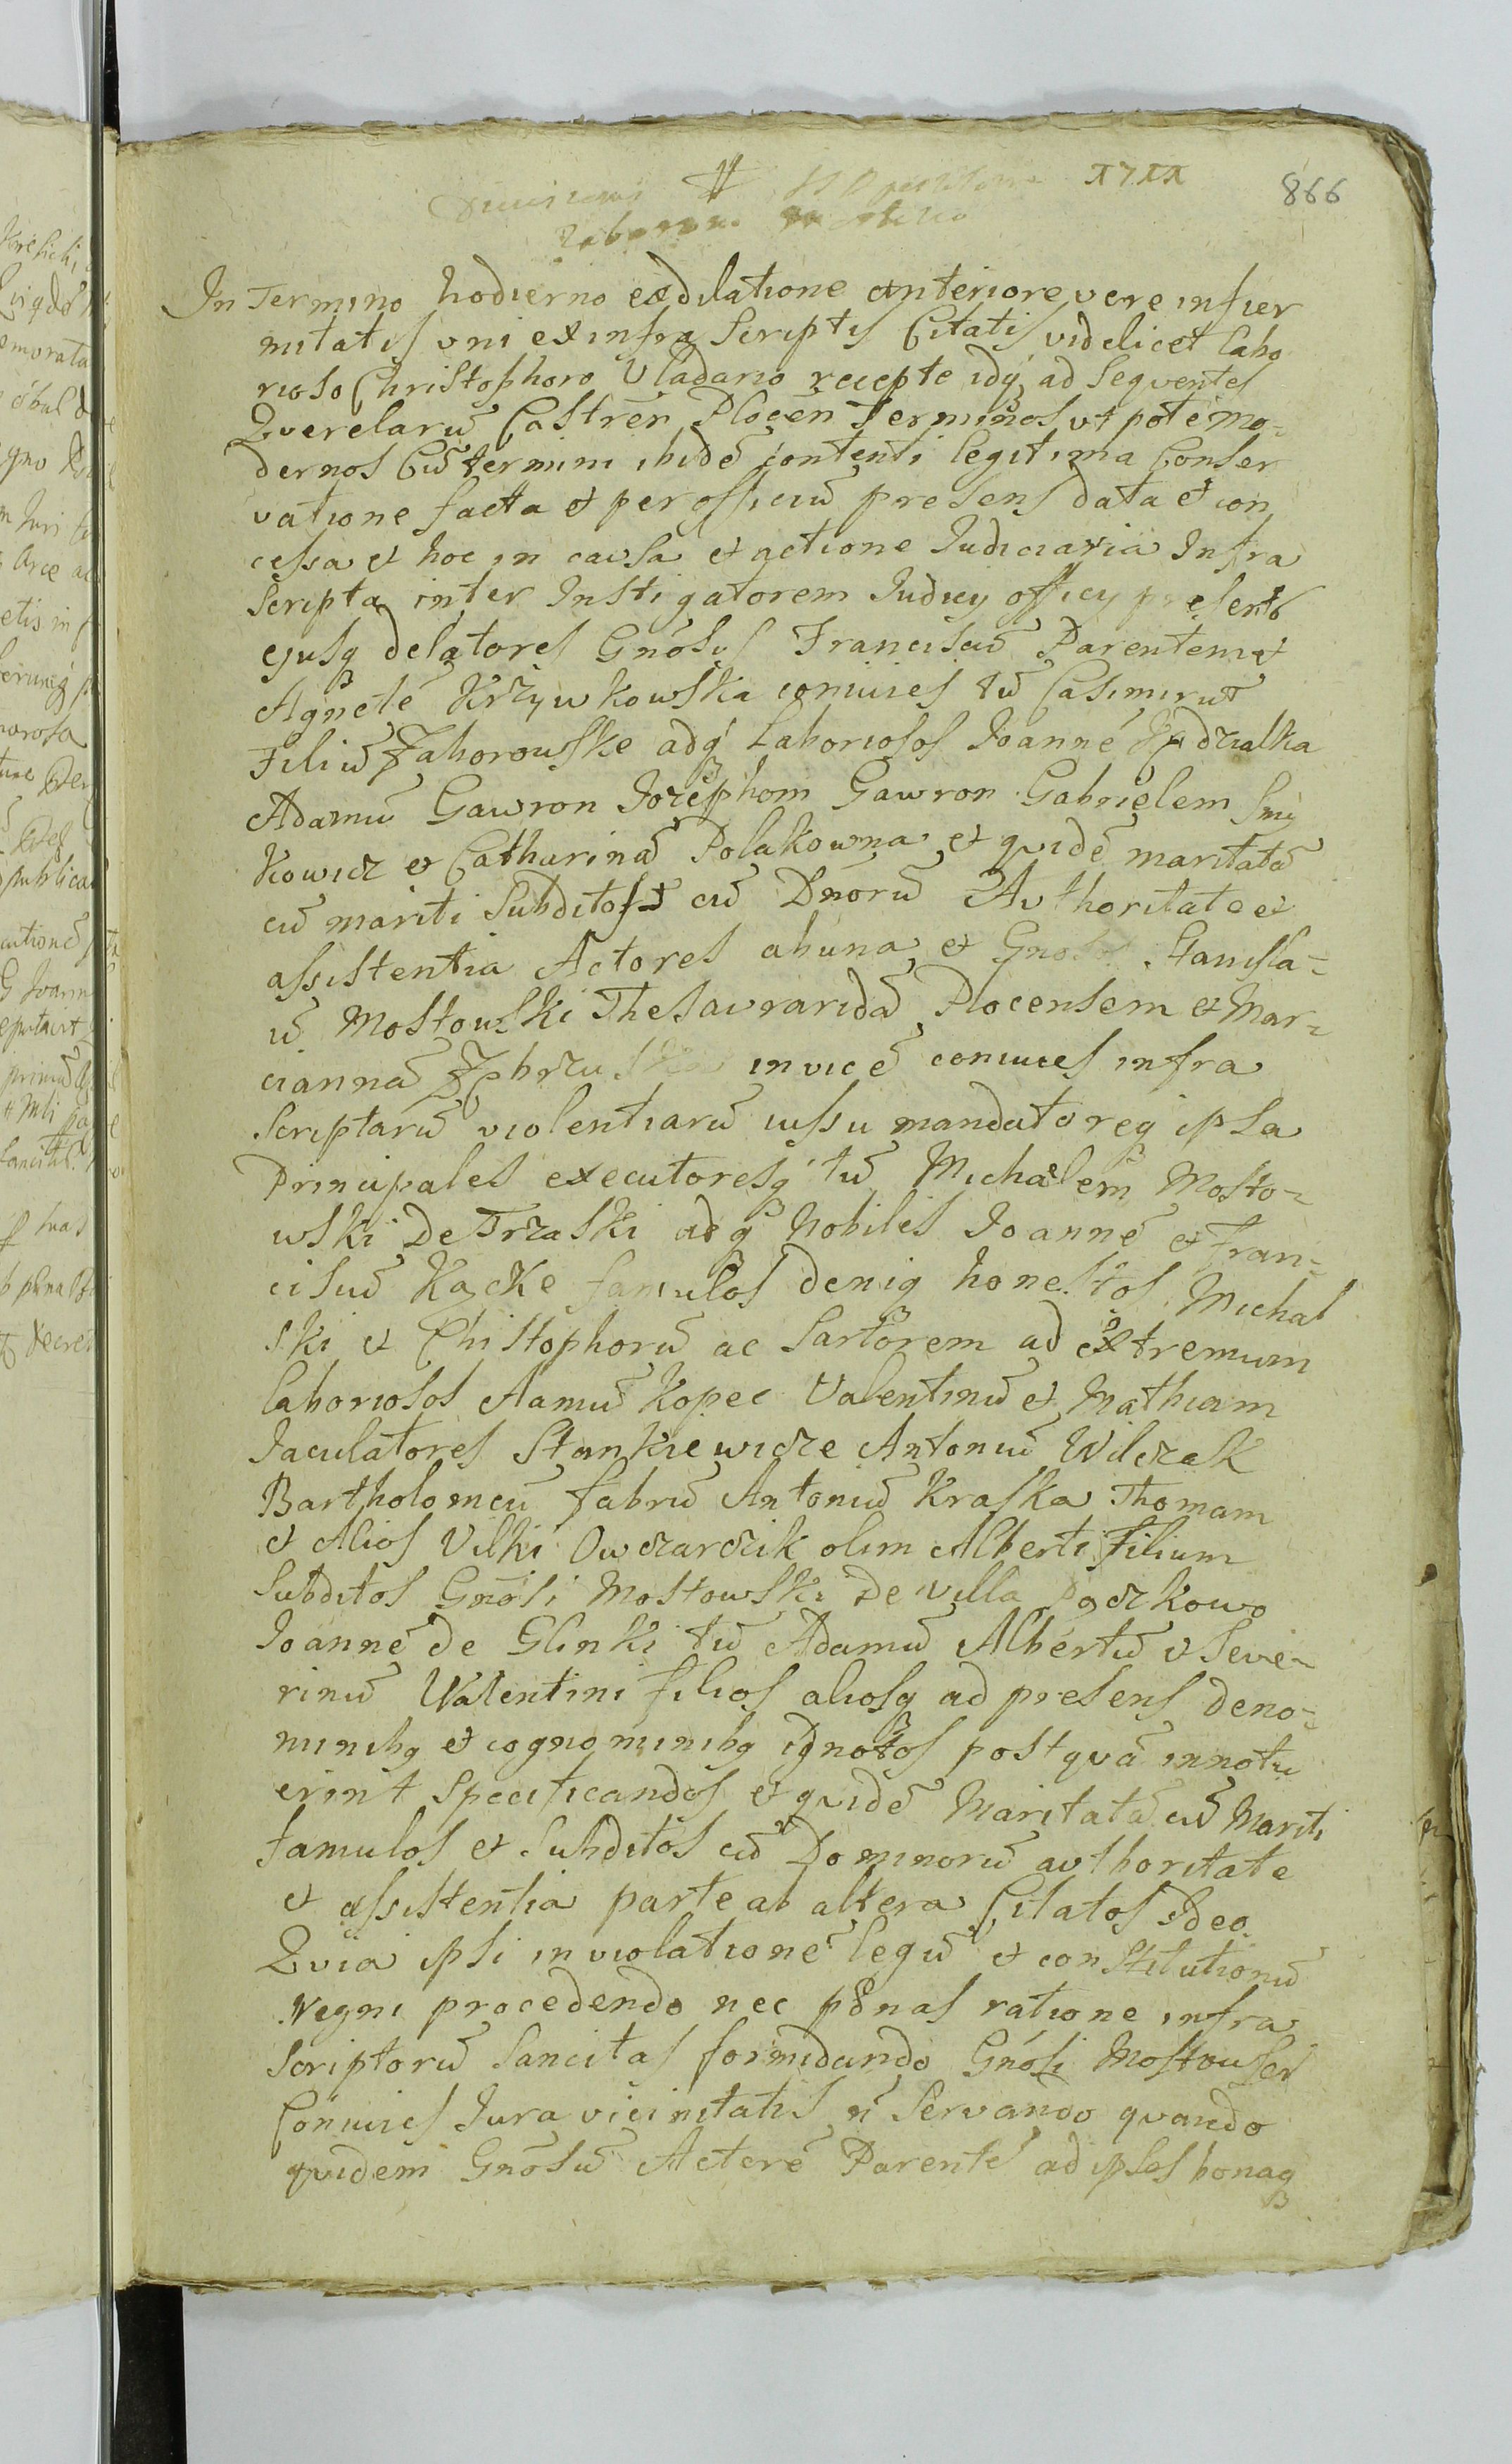 866
In Termino hodierno ex dilatione anteriore vere infir
mitatis uni ex infra Scriptis Citatis videlicet Labo
rioso Christophoro Vladario recepte idq ad Sequentes
Querelarū Castren Plocen Terminos utpote mo-
dernos Cū termini ibidē contenti legitima Conser
vatione facta et per officiū presens data et con
cessa et hoc in causa et actione Judiciaria Infra
Scripta inter Instigatorem Judicy officy presents
ejusq delatores Gnosus Franciscū Parentem et
Agnete Krzywkowska coniuges tū Casimirū
Filiū Zaborowskie adq Laboriosos Joannē
Adamū Gawron Jozephom Gawron Gabrielem Smi
kowicz et Catharinā Polakowna et quidē maritatā
cū mariti Subditos cū Dnorū Authoritate et
assistentia Actores ab una et Stanisla-
ū Mostowski Thesauraridā Plocensem et Mar-
ciannā invicē coniuges infra
Scriptarū violentiarū iussu mandatoreq ipsa
Principales executoresq tū Michaelem Mosto-
wski De Trzaski adq Nobiles Joannē et Fran-
ciscū Kącke famulos deniq honestos Michal
ski et Chistophorū ac Sartorem ad extremum
laboriosos Aamū Kopec Valentinū et Mathiam
Jaculatores Stankiewicze Antoniū Wilczek
Bartholomeū fabrū Antoniū Kraska Thomam
et Alios Vilki Owczarczik olim Alberti Filium
Subditos Gnosi Mostowski De villa Pączkowo
Joannē de Glinki tū Adamū Albertū et Seve-
rinū Walentini filios aliosq ad presens deno-
minibq et cognominibq ignotos postquā innotu
erint Specificandos et quidē Maritatā cū Mariti
famulos et Subditos cū Dominorū authoritate
et assistentia parte ab altera Citatos Ideo
Quia ipsi in violationē legū et constitutionū
Regni procedendo nec pænas ratione infra
Scriptorū Sancitas formidando Gnosi Mostowsci
Coniuges Jura vicinitatis ñ Servando quando
quidem Gnosū Actorē Parentē ad ipsos bonaq